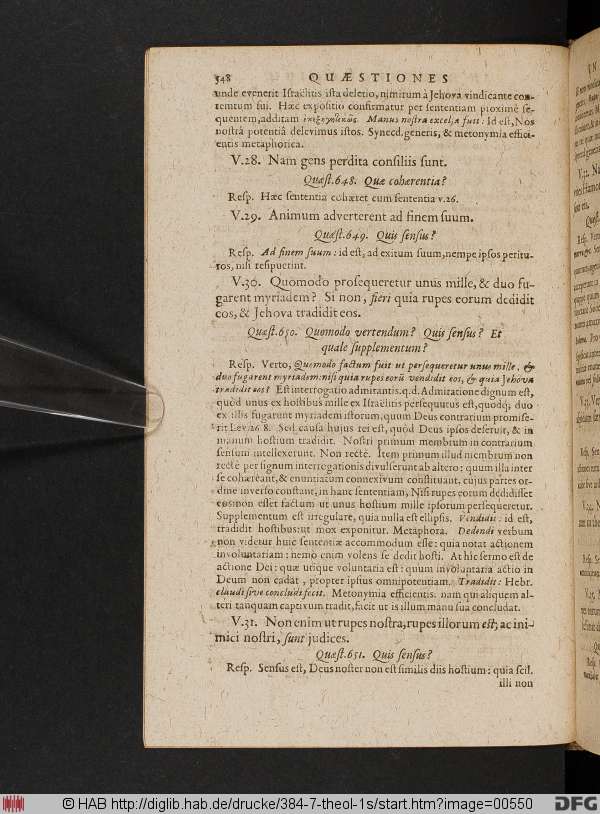 548 QUÆSTIONES
unde evenerit Israëlitis ista deletio, nimirum à Jehova vindicante con-
temtum sui. Hæc expositio confirmatur per sententiam proximè se-
quentem, additam ἐπεξηγηϊκῶς. Manus nostra excelsa fuit: Id est, Nos
nostrâ potentiâ delevimus istos. Synecd. generis, & metonymia effici-
entis metaphorica.
V. 28. Nam gens perdita consiliis sunt.
Quæst. 648. Quæ cohærentia?
Resp. Hæc sententia cohæret cum sententia v. 26.
V. 29. Animum adverterent ad finem suum.
Quæst. 649. Quis sensus?
Resp. Ad finem suum: id est, ad exitum suum, nempe ipsos peritu-
ros, nisi resipuerint.
V. 30. Quomodo prosequeretur unus mille, & duo fu-
garent myriadem? Si non, fieri quia rupes eorum dedidit
eos, & Jehova tradidit eos.
Quæst. 650. Quomodo vertendum? Quis sensus? Et
quale supplementum?
Resp. Verto, Quomodo factum fuit ut persequeretur unus mille, &
duo fugarent myriadem: nisi quia rupes eorū vendidit eos, & quia Jehova
tradidit eos? Est interrogatio admirantis. q. d. Admiratione dignum est,
quòd unus ex hostibus mille ex Israëlitis persequutus est, quodq́; duo
ex illis fugarent myriadem istorum, quum Deus contrarium promise-
rit Lev. 26. 8. Sed causa hujus rei est, quòd Deus ipsos deseruit, & in
manum hostium tradidit. Nostri primum membrum in contrarium
sensum intellexerunt. Non rectè. Item primum illud membrum non
rectè per signum interrogationis divulserunt ab altero: quum illa inter
se cohæreant, & enuntiatum connexivum constituant, cujus partes or-
dine inverso constant, in hanc sententiam, Nisi rupes eorum dedidisset
eos, non esset factum ut unus hostium mille ipsorum persequeretur.
Supplementum est irregulare, quia nulla est ellipsis. Vendidit: id est,
tradidit hostibus: ut mox exponitur. Metaphora. Dedendi verbum
non videtur huic sententiæ accommodum esse: quia notat actionem
involuntariam: nemo enim volens se dedit hosti. At hîc sermo est de
actione Dei: quæ utique voluntaria est: quum involuntaria actio in
Deum non cadat, propter ipsius omnipotentiam. Tradidit: Hebr.
claudi sive concludi fecit. Metonymia efficientis. nam qui aliquem al-
teri tanquam captivum tradit, facit ut is illum manu sua concludat.
V. 31. Non enim ut rupes nostra, rupes illorum est; ac ini-
mici nostri, sunt judices.
Quæst. 651. Quis sensus?
Resp. Sensus est, Deus noster non est similis diis hostium: quia scil.
illi non
© HAB http://diglib.hab.de/drucke/384-7-theol-1s/start.htm?image=00550
DFG